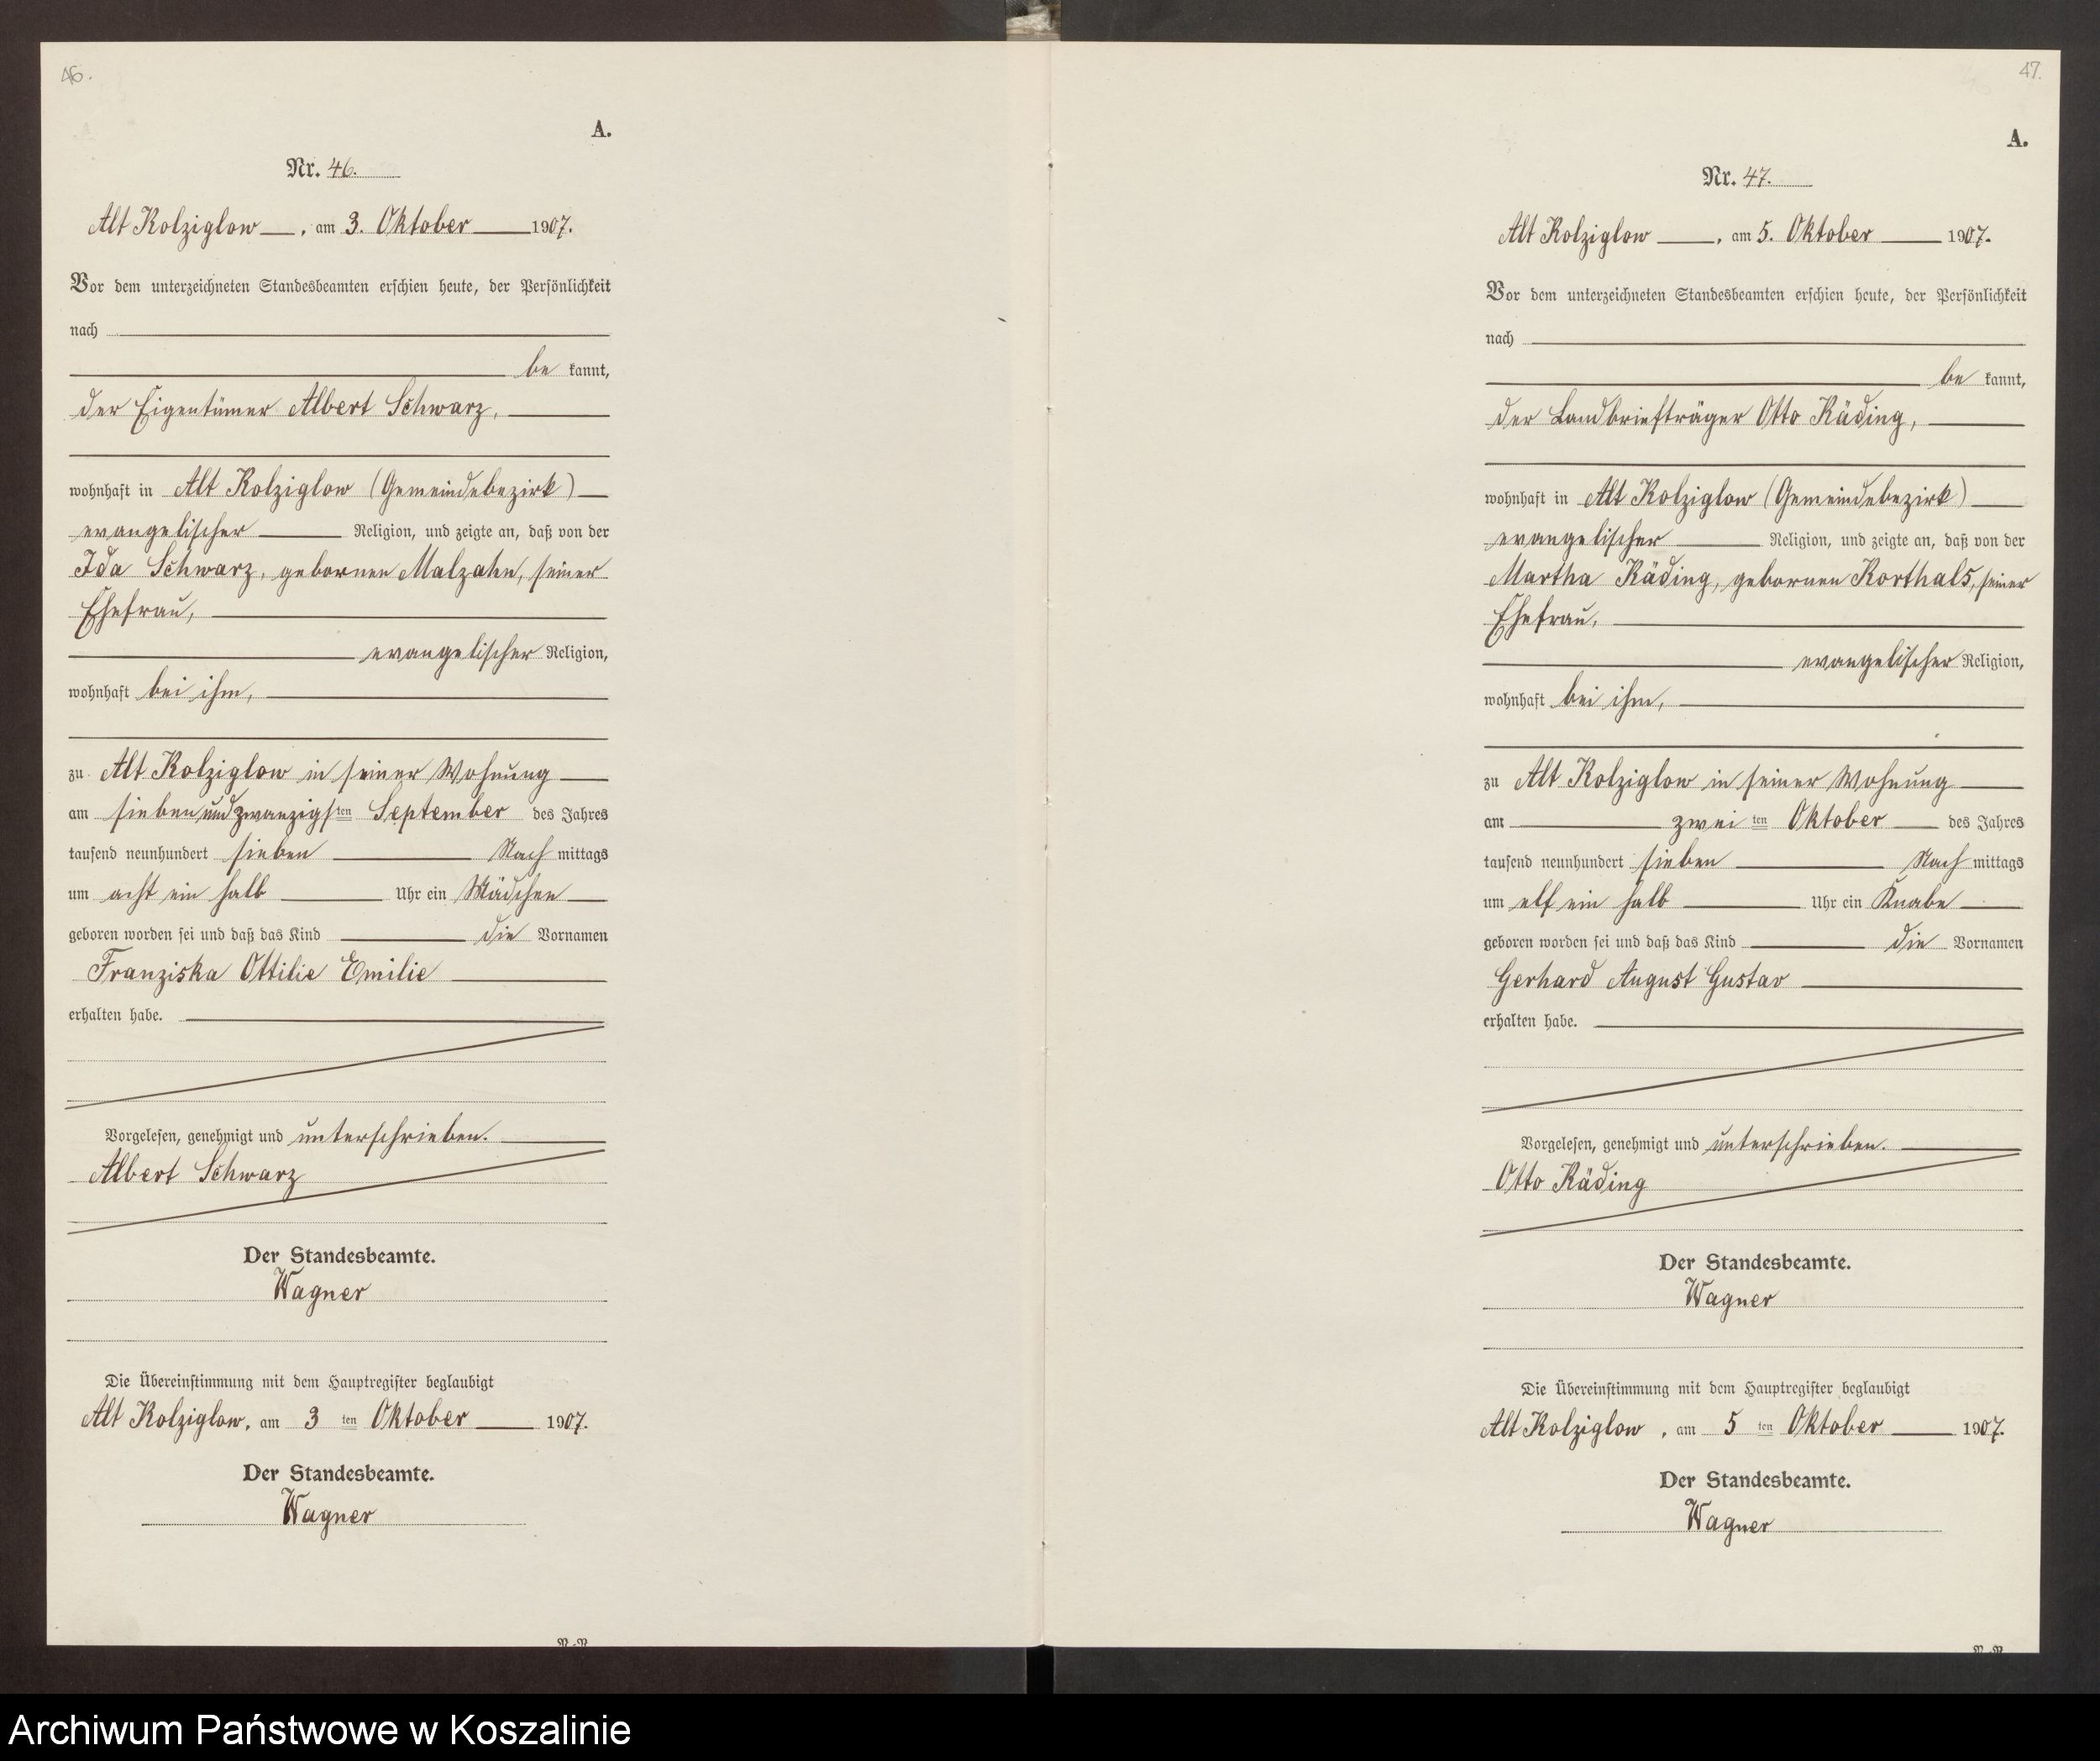 46.
A.
Nr. 46.
Alt Kolziglow, am 3. Oktober 1907.
Vor dem unterzeichneten Standesbeamten erschien heute, der Persönlichkeit
nach
be kannt,
der Eigentümer Albert Schwarz,
wohnhaft in Alt Kolziglow (Gemeindebezirk)
evangelischer Religion, und zeigte an, daß von der
Ida Schwarz, geborenen Malzahn, seiner
Ehefrau,
evangelischer Religion,
wohnhaft bei ihm,
zu Alt Kolziglow in seiner Wohnung
am siebenundzwanzigsten September des Jahres
tausend neunhundert sieben Nachmittags
um acht ein halb Uhr ein Mädchen
geboren worden sei und daß das Kind die Vornamen
Franziska Ottilie Emilie
erhalten habe.
Vorgelesen, genehmigt und unterschrieben.
Albert Schwarz
Der Standesbeamte.
Wagner
Die Übereinstimmung mit dem Hauptregister beglaubigt
Alt Kolziglow, am 3 ten Oktober 1907.
Der Standesbeamte.
Wagner
47.
A.
Nr. 47.
Alt Kolziglow, am 5. Oktober 1907.
Vor dem unterzeichneten Standesbeamten erschien heute, der Persönlichkeit
nach
be kannt,
der Landbriefträger Otto Käding,
wohnhaft in Alt Kolziglow (Gemeindebezirk)
evangelischer Religion, und zeigte an, daß von der
Martha Käding, geborenen Korthals, seiner
Ehefrau,
evangelischer Religion,
wohnhaft bei ihm,
zu Alt Kolziglow in seiner Wohnung
am zwei ten Oktober des Jahres
tausend neunhundert sieben Nachmittags
um elf ein halb Uhr ein Knabe
geboren worden sei und daß das Kind die Vornamen
Gerhard August Gustav
erhalten habe.
Vorgelesen, genehmigt und unterschrieben.
Otto Käding
Der Standesbeamte.
Wagner
Die Übereinstimmung mit dem Hauptregister beglaubigt
Alt Kolziglow, am 5 ten Oktober 1907.
Der Standesbeamte.
Wagner
Archiwum Państwowe w Koszalinie